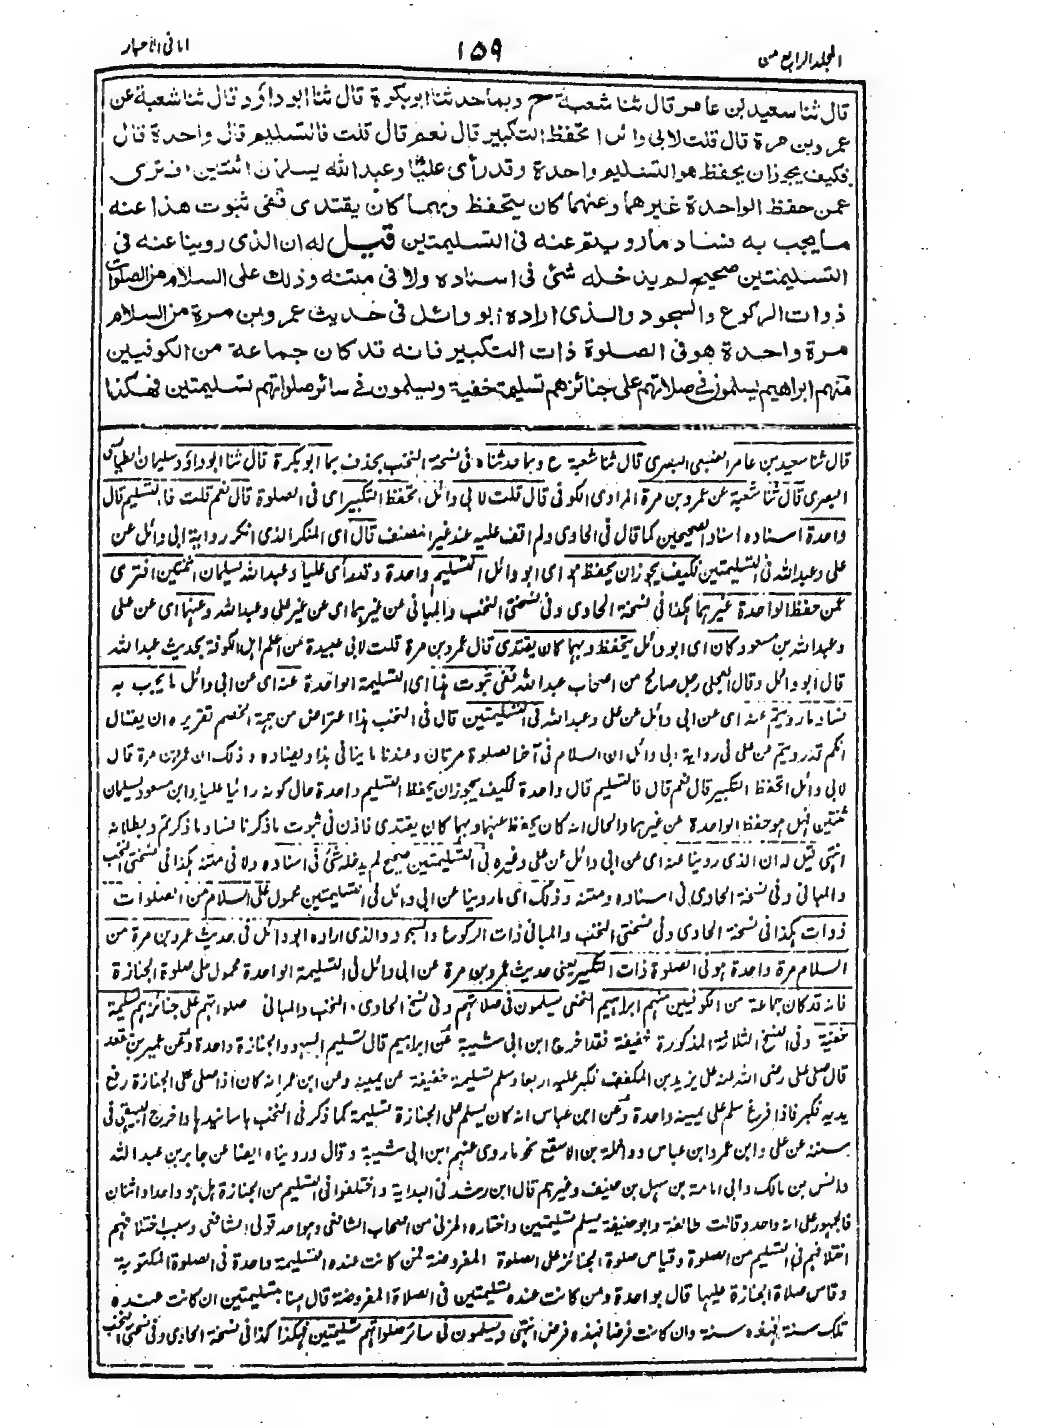 المجلد الرابع من
١٥٩
امانی الاحبار
قال ثنا سعيد بن عامر قال ثنا شعبة ح وبما حدثنا ابو بكرة قال ثنا ابو داؤد قال ثنا شعبة عن
عمرو بن مرة قال قلت لابی وائل اتحفظ التكبير قال نعم قال قلت فالتسليم قال واحدة قال
فكيف يجوز ان يحفظ هو التسليم واحدة وقد رأى عليًّا وعبد الله يسلمان اثنتين افترى
عمن حفظ الواحدة غيرهما وعنهما كان يتحفظ وبهما كان يقتدى ففى ثبوت هذا عنه
ما يجب به فساد ما رويتم عنه فى التسليمتين قيل له ان الذى روينا عنه فى
التسليمتين صحيح لم يدخله شئ فى اسناده ولا فى متنه وذلك على السلام من الصلوات
ذوات الركوع والسجود والذى اراده ابو وائل فى حديث عمرو بن مرة من السلام
مرة واحدة هو فى الصلوة ذات التكبير فانه قد كان جماعة من الكوفيين
منهم ابراهيم يسلمون فى صلاتهم على جنائزهم تسليمة خفية ويسلمون فى سائر صلواتهم تسليمتين فهكذا
قال ثنا سعيد بن عامر الضبعى البصرى قال ثنا شعبة ح وبما حدثناه فى نسخة النخب بحذف بما ابو بكرة قال ثنا ابو داؤد سليمان الطيالسى
البصرى قال ثنا شعبة عن عمرو بن مرة المرادى الكوفى قال قلت لابى وائل اتحفظ التكبير اى فى الصلوة قال نعم قلت فالتسليم قال
واحدة اسناده اسناد الصحيحين كما قال فى الحاوى ولم اقف عليه عند غير المصنف قال اى المنكر الذى انكر رواية ابى وائل عن
على وعبد الله فى التسليمتين فكيف يجوز ان يحفظ هو اى ابو وائل التسليم واحدة وقد رأى عليا وعبد الله يسلمان اثنتين افترى
عمن حفظ الواحدة غيرهما هكذا فى نسخة الحاوى وفى نسختى النخب والمبانى عن غيرهما اى عن غير على وعبد الله وعنهما اى عن على
وعبد الله بن مسعود كان اى ابو وائل يتحفظ وبهما كان يقتدى قال عمرو بن مرة قلت لابى عبيدة من اعلم اهل الكوفة بحديث عبد الله
قال ابو وائل وقال العجلى رجل صالح من اصحاب عبد الله ففى ثبوت هذا اى التسليمة الواحدة عنه اى عن ابى وائل ما يجب به
فساد ما رويتم عنه اى عن ابى وائل عن على وعبد الله فى التسليمتين قال فى النخب هذا اعتراض من جهة الخصم تقريره ان يقال
انكم قد رويتم عن على فى رواية ابى وائل ان السلام فى آخر الصلوة مرتان وعندنا ما ينافى هذا ويضاده وذلك ان عمرو بن مرة قال
لابى وائل اتحفظ التكبير قال نعم قال فالتسليم قال واحدة فكيف يجوز ان يحفظ التسليم واحدة حال كونه رائيا عليا وابن مسعود يسلمان
ثنتين فهل هو حفظ الواحدة عن غيرهما والحال انه كان يحفظ عنهما وبهما كان يقتدى فاذن فى ثبوت ما ذكرنا فساد ما ذكرتم وبطلانه
انتهى قيل له ان الذى روينا عنه اى عن ابى وائل عن على وغيره فى التسليمتين صحيح لم يدخله شئ فى اسناده ولا فى متنه هكذا فى نسختى النخب
والمبانى وفى نسخة الحاوى فى اسناده ومتنه وذلك اى ما روينا عن ابى وائل فى التسليمتين محمول على السلام من الصلوات
ذوات هكذا فى نسخة الحاوى وفى نسختى النخب والمبانى ذات الركوع والسجود والذى اراده ابو وائل فى حديث عمرو بن مرة من
السلام مرة واحدة هو فى الصلوة ذات التكبير يعنى حديث عمرو بن مرة عن ابى وائل فى التسليمة الواحدة محمول على صلوة الجنازة
فانه قد كان جماعة من الكوفيين منهم ابراهيم النخعى يسلمون فى صلاتهم وفى نسخ الحاوى والنخب والمبانى صلواتهم على جنائزهم تسليمة
خفية وفى النسخ الثلاثة المذكورة خفيفة فقد اخرج ابن ابى شيبة عن ابراهيم قال تسليم السهو والجنازة واحدة وعن عمير بن سعد
قال صلى على رضى الله عنه على يزيد بن المكفف فكبر عليه اربعا وسلم تسليمة خفيفة عن يمينه وعن ابن عمر انه كان اذا صلى على الجنازة رفع
يديه فكبر فاذا فرغ سلم على يمينه واحدة وعن ابن عباس انه كان يسلم على الجنازة تسليمة كما ذكر فى النخب باسانيدها واخرج البيهقى فى
سننه عن على وابن عمر وابن عباس وواثلة بن الاسقع نحو ما روى عنهم ابن ابى شيبة وقال وروينا ايضا عن جابر بن عبد الله
وانس بن مالك وابى امامة بن سهل بن حنيف وغيرهم قال ابن رشد فى البداية واختلفوا فى التسليم من الجنازة هل هو واحد او اثنان
فالجمهور على انه واحد وقالت طائفة وابو حنيفة يسلم تسليمتين واختاره المزنى من اصحاب الشافعى وهو احد قولى الشافعى وسبب اختلافهم
اختلافهم فى التسليم من الصلوة وقياس صلوة الجنائز على الصلوة المفروضة فمن كانت عنده التسليمة واحدة فى الصلوة المكتوبة
وقاس صلاة الجنازة عليها قال بواحدة ومن كانت عنده تسليمتين فى الصلاة المفروضة قال هنا بتسليمتين ان كانت عنده
تلك سنة فهذه سنة وان كانت فرضا فهذه فرض انتهى ويسلمون فى سائر صلواتهم تسليمتين فهكذا كذا فى نسخة الحاوى وفى نسختى النخب